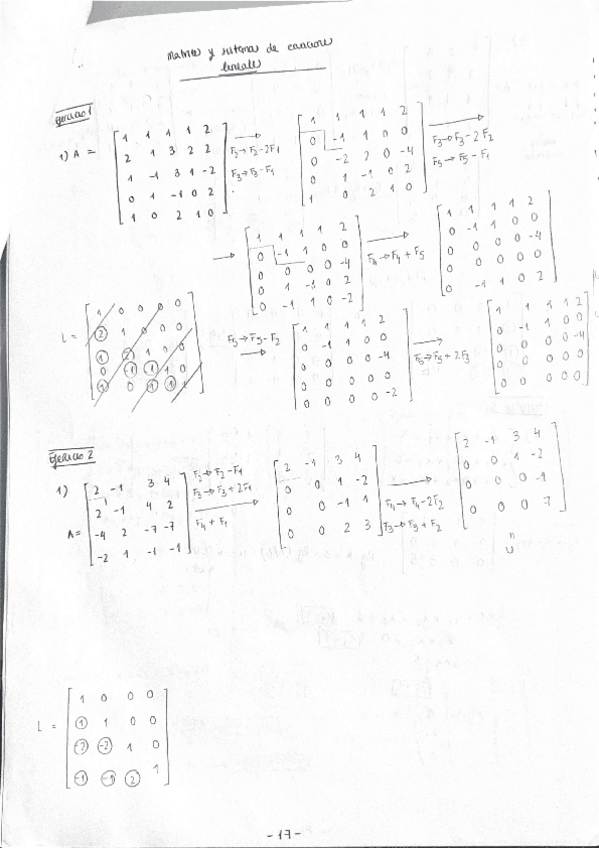 Matrices y sistema de ecuaciones
lineales
Ejercicio 1
1) A =
1 1 1 1 2
2 1 3 2 2
1 -1 3 1 -2
0 1 -1 0 2
1 0 2 1 0
F2→F2-2F1
F3→F3-F1
1 1 1 1 2
0 -1 1 0 0
0 -2 2 0 -4
0 1 -1 0 2
1 0 2 1 0
F3→F3-2F2
F5→F5-F1
1 1 1 1 2
0 -1 1 0 0
0 0 0 0 -4
0 1 -1 0 2
0 -1 1 0 -2
F4→F4+F5
1 1 1 1 2
0 -1 1 0 0
0 0 0 0 -4
0 0 0 0 0
0 -1 1 0 2
L =
1 0 0 0 0
2 1 0 0 0
1 2 1 0 0
0 -1 1 1 0
1 0 1 1 1
F5→F5-F2
1 1 1 1 2
0 -1 1 0 0
0 0 0 0 -4
0 0 0 0 0
0 0 0 0 -2
F5→F5+2F3
1 1 1 1 2
0 -1 1 0 0
0 0 0 0 -4
0 0 0 0 0
0 0 0 0 0
Ejercicio 2
1)
A =
2 -1 3 4
2 -1 4 2
-4 2 -7 -7
-2 1 -1 -1
F2→F2-F1
F3→F3+2F1
F4+F1
2 -1 3 4
0 0 1 -2
0 0 -1 1
0 0 2 3
F4→F4-2F2
F3→F3+F2
2 -1 3 4
0 0 1 -2
0 0 0 -1
0 0 0 7
U
L =
1 0 0 0
1 1 0 0
-2 -2 1 0
-1 -1 2 1
-17-